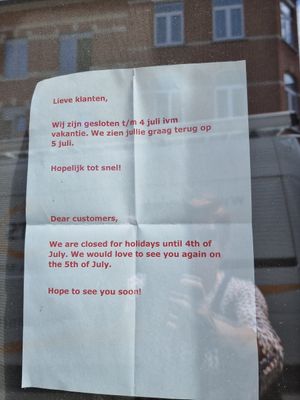 Lieve klanten,
Wij zijn gesloten t/m 4 juli ivm
vakantie. We zien jullie graag terug op
5 juli.
Hopelijk tot snel!
Dear customers,
We are closed for holidays until 4th of
July. We would love to see you again on
the 5th of July.
Hope to see you soon!